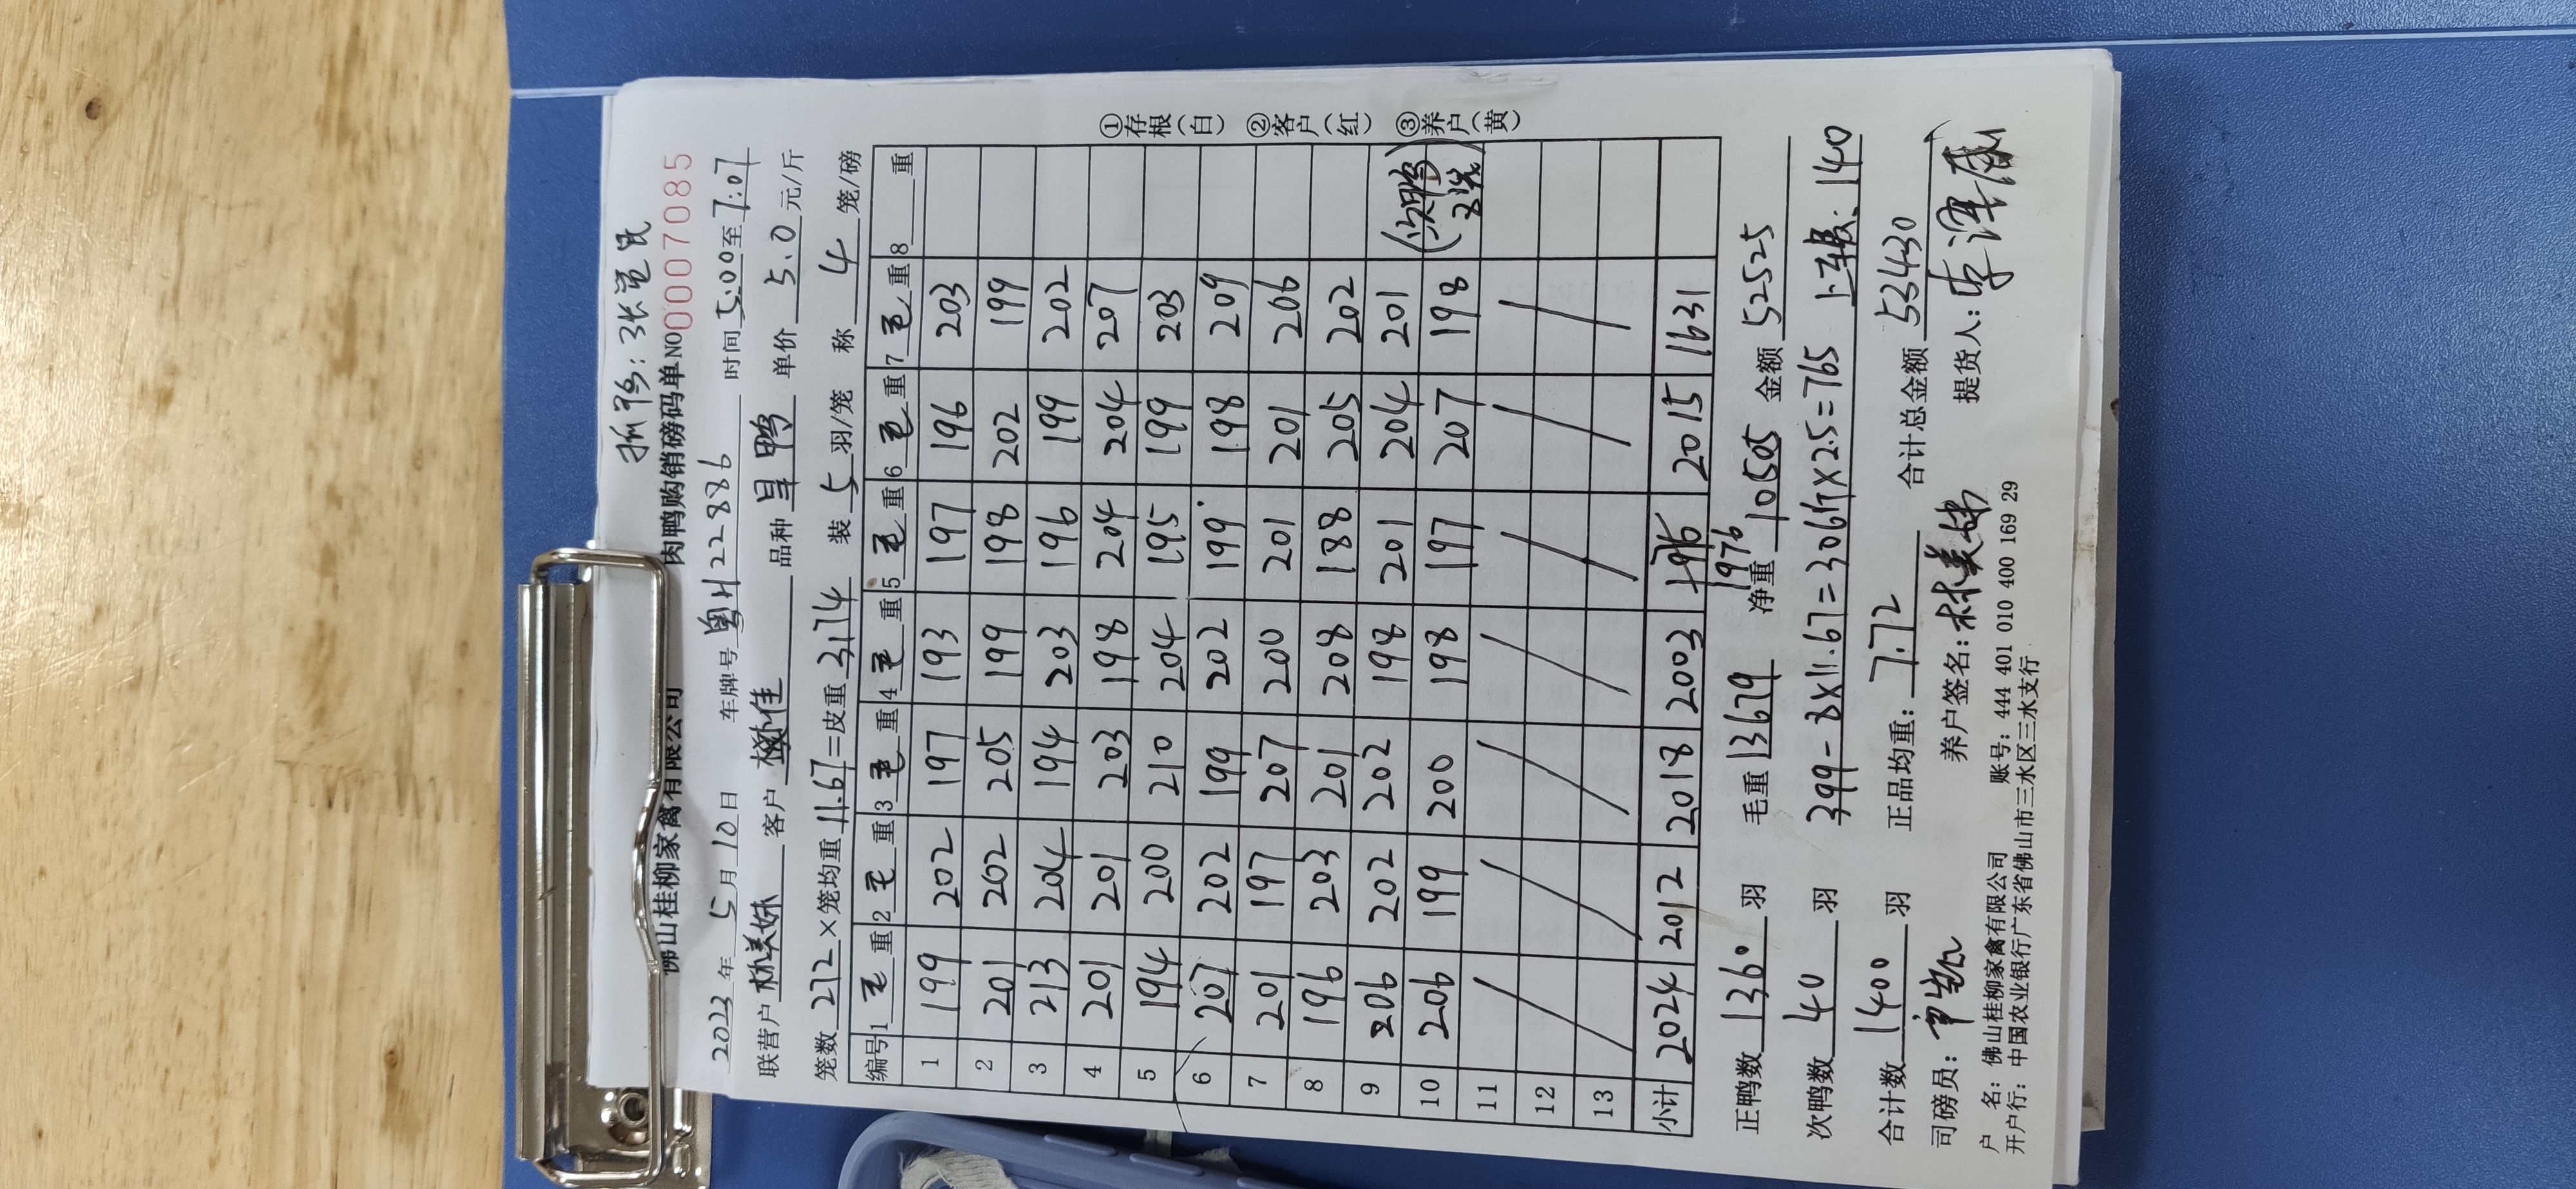 抓鸭:张笪民
佛山桂柳家禽有限公司 肉鸭购销磅码单 NO 0007085
2023年5月10日 车牌号 粤H22886 时间 5:00至7:07
联营户 林美妹 客户 樾佳 品种 旦鸭 单价 5.0 元/斤
笼数 272 ×笼均重 11.67 =皮重 3174 装 5 羽/笼 称 4 笼/磅
编号 1毛重 2毛重 3毛重 4毛重 5毛重 6毛重 7毛重 8 重
1 199 202 197 193 197 196 203
2 201 202 205 199 198 202 199
3 213 204 194 203 196 199 202
4 201 201 203 198 204 204 207
5 194 200 210 204 195 199 203
6 207 202 199 202 199 198 209
7 201 197 207 200 201 201 206
8 196 203 201 208 188 205 202
9 206 202 202 198 201 204 201
10 206 199 200 198 197 207 198 (次鸭
11
12
13
小计 2024 2012 2018 2003 1976 2015 1631
正鸭数 1360 羽 毛重 13679 净重 10505 金额 52525
次鸭数 40 羽 399-8×11.67=306斤×2.5=765 上车费:140
合计数 1400 羽 正品均重: 7.72 合计总金额 53430
司磅员: 养户签名: 林美妹 提货人: 李泽威
户 名: 佛山桂柳家禽有限公司 账号: 444 401 010 400 169 29
开户行: 中国农业银行广东省佛山市三水区三水支行
①存根(白) ②客户(红) ③养户(黄)